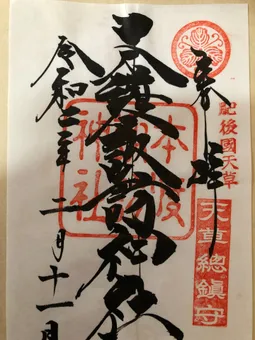 奉拝
肥後國天草
天草總鎮守
本渡
諏訪神社
神社
令和
二月十一日